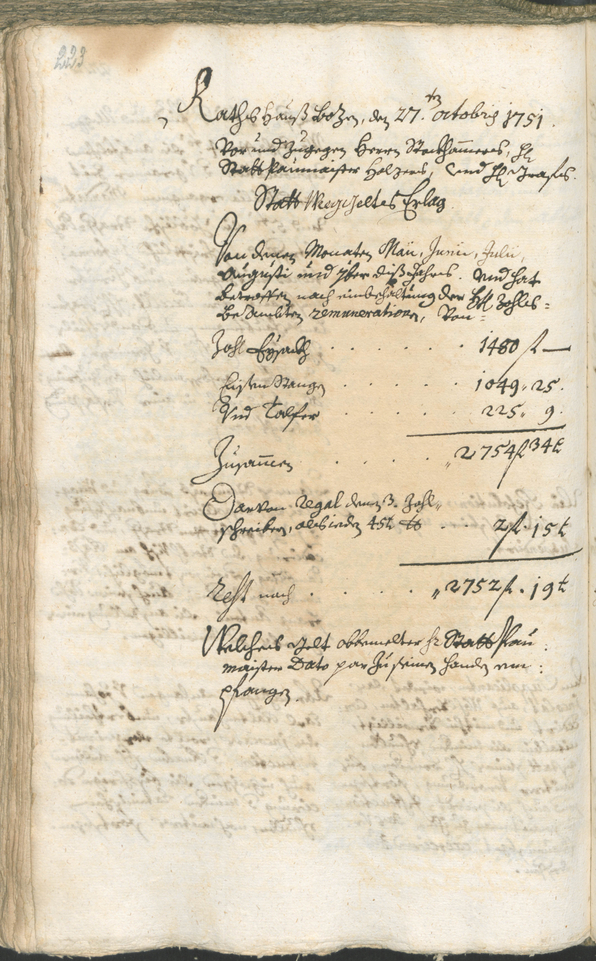 223
Raths Hauß Bozen, den 27.ten Octobris 1751.
Vor und Zugegen Herrn Statthammers, H:
Statt Paumaister Holzers, und H:
Statt Weggeltes Erlag
Von denen Monaten Maii, Junii, Julii,
Augusti und 7ber diß Jahres. Und hat
betroffen nach einbehaltung der HH: Zohles-
beambten remunerationen, Von-
Zohl Eysach . . . . . 1480 f —
Eisten Stangen . . . . 1049. 25.
Und Talfer . . . . 225. 9.
Zusammen . . . . „2754 f 34 k
Darvon Regal denen 3. Zohl-
schreiber, als ieden 45 k . . 2 f. 15 k
Rest nach . . . . . „2752 f. 19 k
Welches Gelt obbemelter H: Statt Pau-
maister Dato par zu seinen handen em-
pfangen